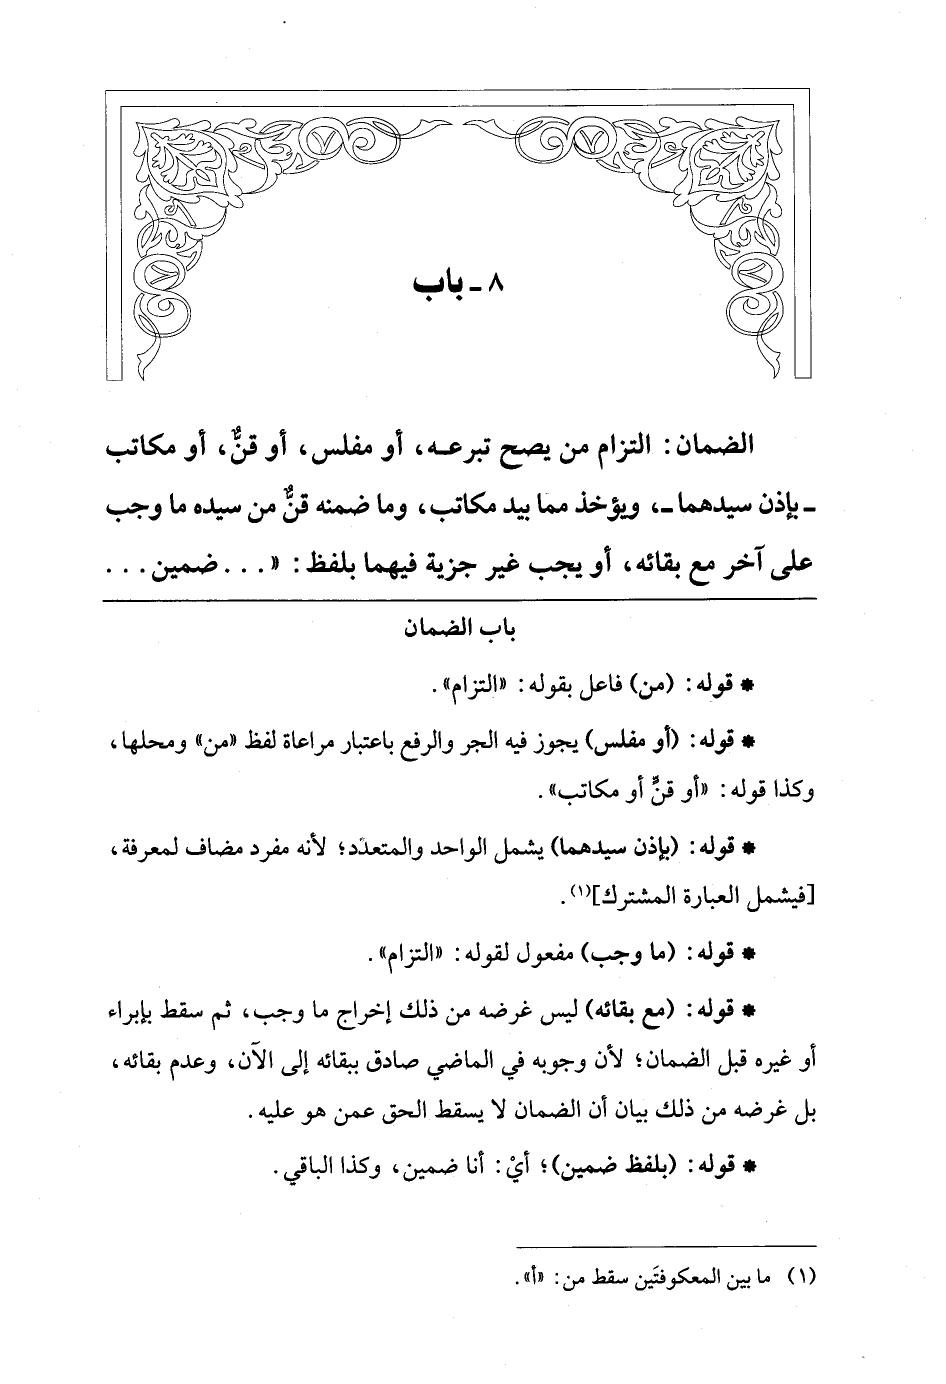 ٨ ـ باب
الضمان: التزام من يصح تبرعـه، أو مفلس، أو قنٌّ، أو مكاتب
ـ بإذن سيدهما ـ، ويؤخذ مما بيد مكاتب، وما ضمنه قنٌّ من سيده ما وجب
على آخر مع بقائه، أو يجب غير جزية فيهما بلفظ: «... ضمين...
باب الضمان
* قوله: (من) فاعل بقوله: «التزام».
* قوله: (أو مفلس) يجوز فيه الجر والرفع باعتبار مراعاة لفظ «من» ومحلها،
وكذا قوله: «أو قنٍّ أو مكاتب».
* قوله: (بإذن سيدهما) يشمل الواحد والمتعدِّد؛ لأنه مفرد مضاف لمعرفة،
[فيشمل العبارة المشترك](١).
* قوله: (ما وجب) مفعول لقوله: «التزام».
* قوله: (مع بقائه) ليس غرضه من ذلك إخراج ما وجب، ثم سقط بإبراء
أو غيره قبل الضمان؛ لأن وجوبه في الماضي صادق ببقائه إلى الآن، وعدم بقائه،
بل غرضه من ذلك بيان أن الضمان لا يسقط الحق عمن هو عليه.
* قوله: (بلفظ ضمين)؛ أيْ: أنا ضمين، وكذا الباقي.
(١) ما بين المعكوفتَين سقط من: «أ».